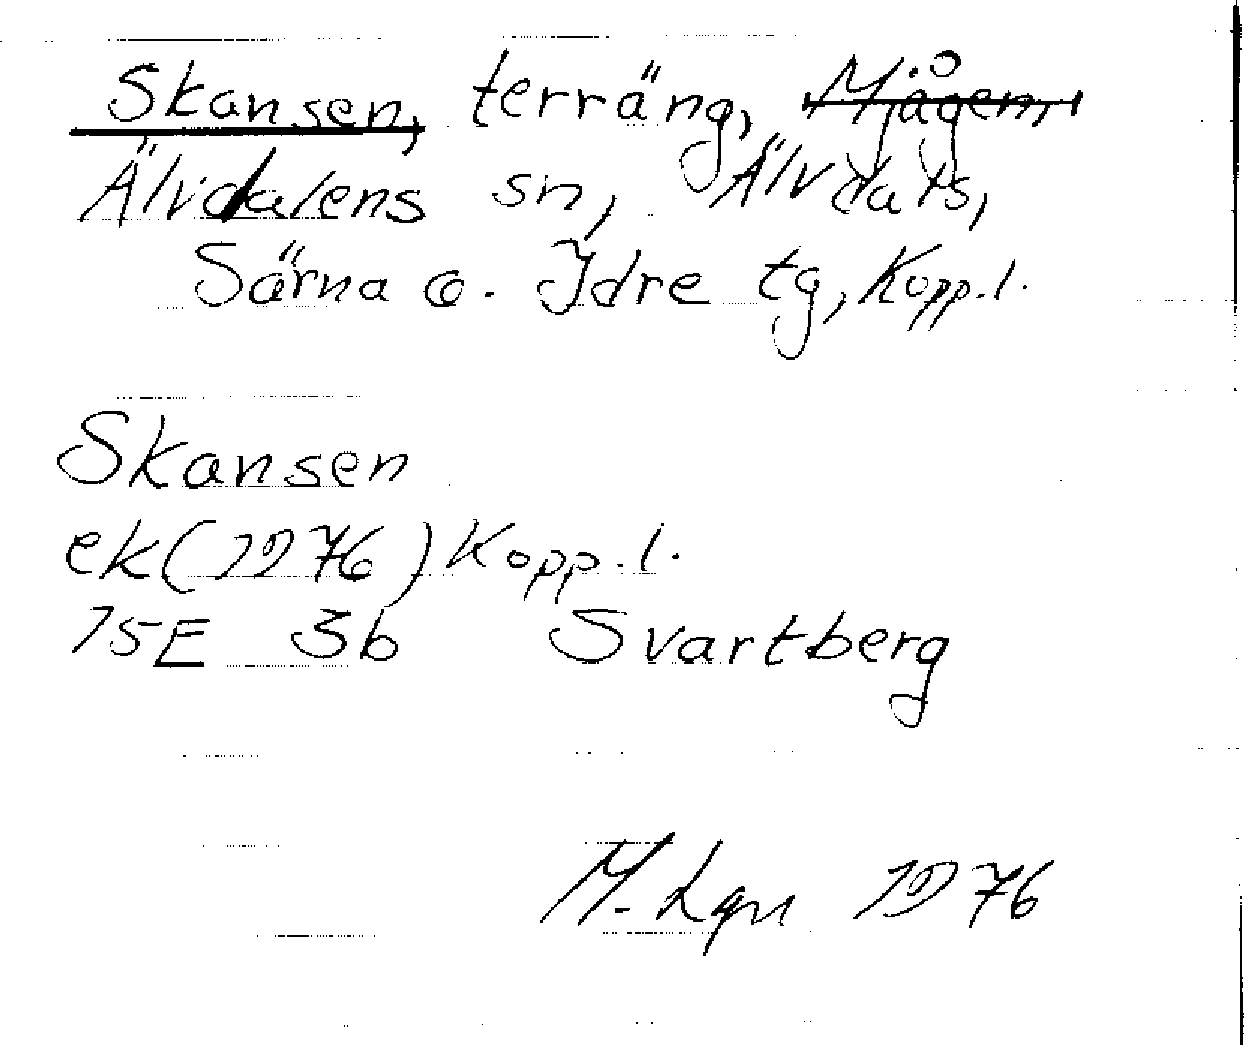 Skansen, terräng, Mjågen,
Älvdalens sn, Älvdals,
Särna o. Idre tg, Kopp.l.
Skansen
ek(1976) Kopp.l.
15E 3b Svartberg
M. Lgn 1976